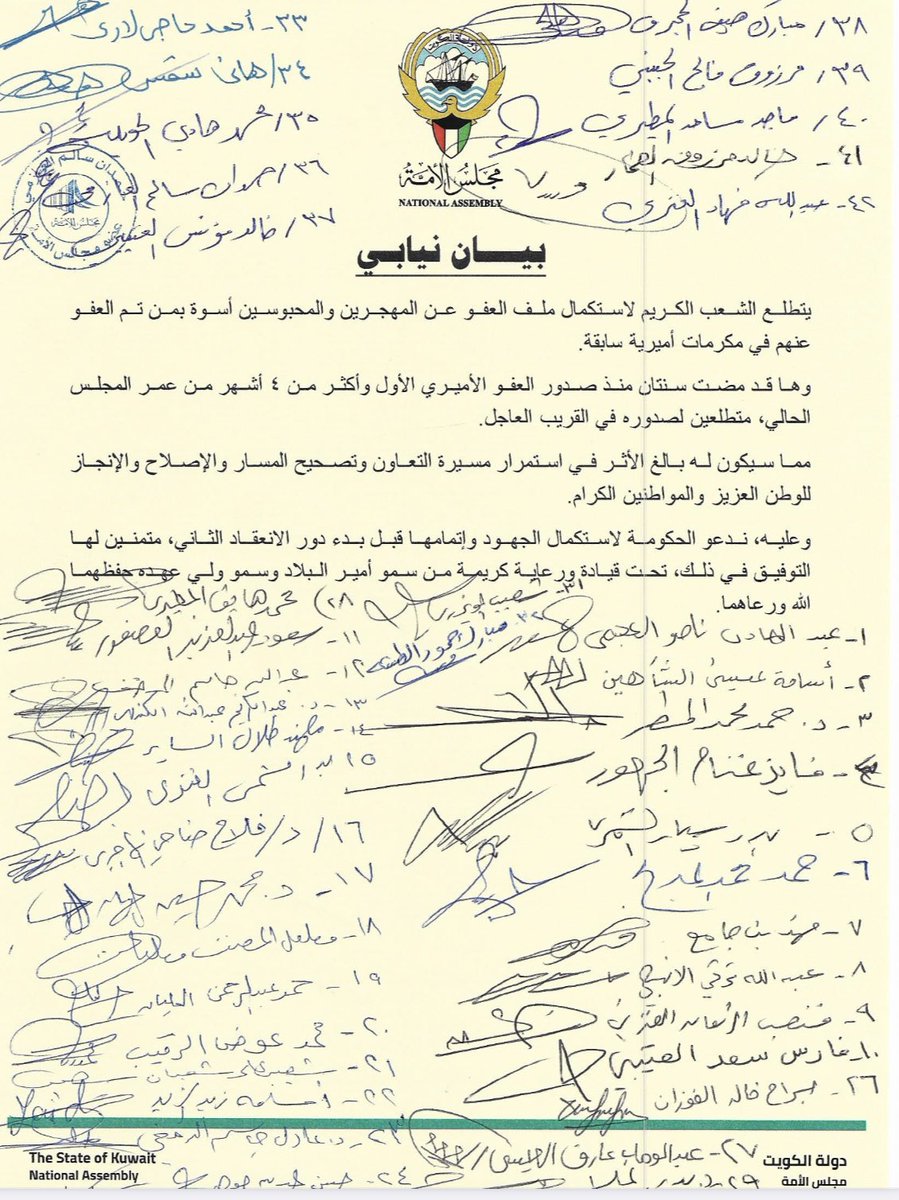 ٣٨/ مبارك صيفي الحجرف
٣٩/ مرزوق فالح الحبيني
٤٠/ ماجد مساعد المطيري
٤١- خالد مرزوق العمار
٤٢- عبدالله فهاد العنزي
٣٣- أحمد حاجي لاري
٣٤/ هاني شمس
٣٥/ محمد هادي الحويلة
٣٦/ حمدان سالم العازمي
٣٧/ خالد مؤنس العتيبي
مجلس الأمة
NATIONAL ASSEMBLY
بيان نيابي
يتطلع الشعب الكريم لاستكمال ملف العفو عن المهجرين والمحبوسين أسوة بمن تم العفو
عنهم في مكرمات أميرية سابقة.
وها قد مضت سنتان منذ صدور العفو الأميري الأول وأكثر من ٤ أشهر من عمر المجلس
الحالي، متطلعين لصدوره في القريب العاجل.
مما سيكون له بالغ الأثر في استمرار مسيرة التعاون وتصحيح المسار والإصلاح والإنجاز
للوطن العزيز والمواطنين الكرام.
وعليه، ندعو الحكومة لاستكمال الجهود وإتمامها قبل بدء دور الانعقاد الثاني، متمنين لها
التوفيق في ذلك، تحت قيادة ورعاية كريمة من سمو أمير البلاد وسمو ولي عهده حفظهما
الله ورعاهما.
٣١-
٣٢-
٢٨)
١- عبد الهادي ناصر العجمي
٢- أسامة عيسى الشاهين
٣- د. حمد محمد المطر
٤- فايز غنام الجمهور
٥- بدر سيار الشمري
٦- حمد محمد المدلج
٧- مهند بن جامع
٨- عبدالله تركي الانبعي
٩-
١٠- فارس سعد العتيبي
٢٦- جراح خالد الفوزان
٢٧- عبدالوهاب عارف العيسى
٢٩- د. بدر الملا
١١- سعود عبدالعزيز العصفور
١٢-
١٣- د. عبدالكريم عبدالله الكندري
١٤- مهلهل طلال الساير
١٥
١٦/ د/ فلاح ضاحي الهاجري
١٧- د. محمد حسين المهان
١٨- مهلهل المضف
١٩- حمد عبدالرحمن العليان
٢٠- محمد عوض الرقيب
٢١- شعيب علي شعبان
٢٢- أسامة زيد الزيد
٢٣- د. عادل جاسم الدمخي
٢٤-
The State of Kuwait
National Assembly
دولة الكويت
مجلس الأمة